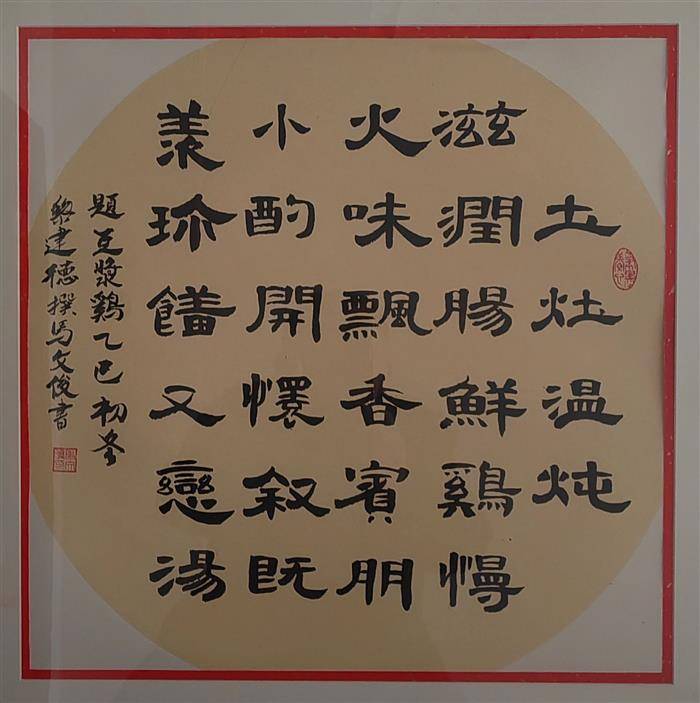 土灶温炖
滋潤腸鮮鷄慢
火味飄香賓朋
小酌開懷叙既
羨珎饍又戀湯
題豆漿鷄乙巳初冬
黎建德撰馬文俊書